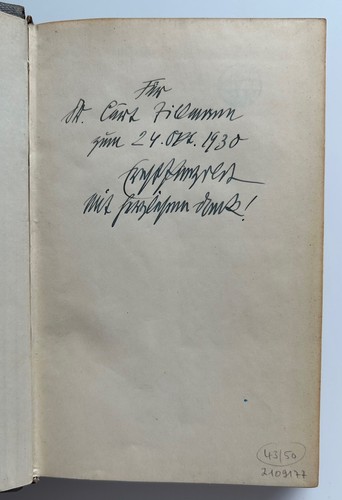 Für
Dr. Curt Tillmann
zum 24. Okt. 1930
Ernst Penzoldt
Mit herzlichem Dank!
43/50
2109177